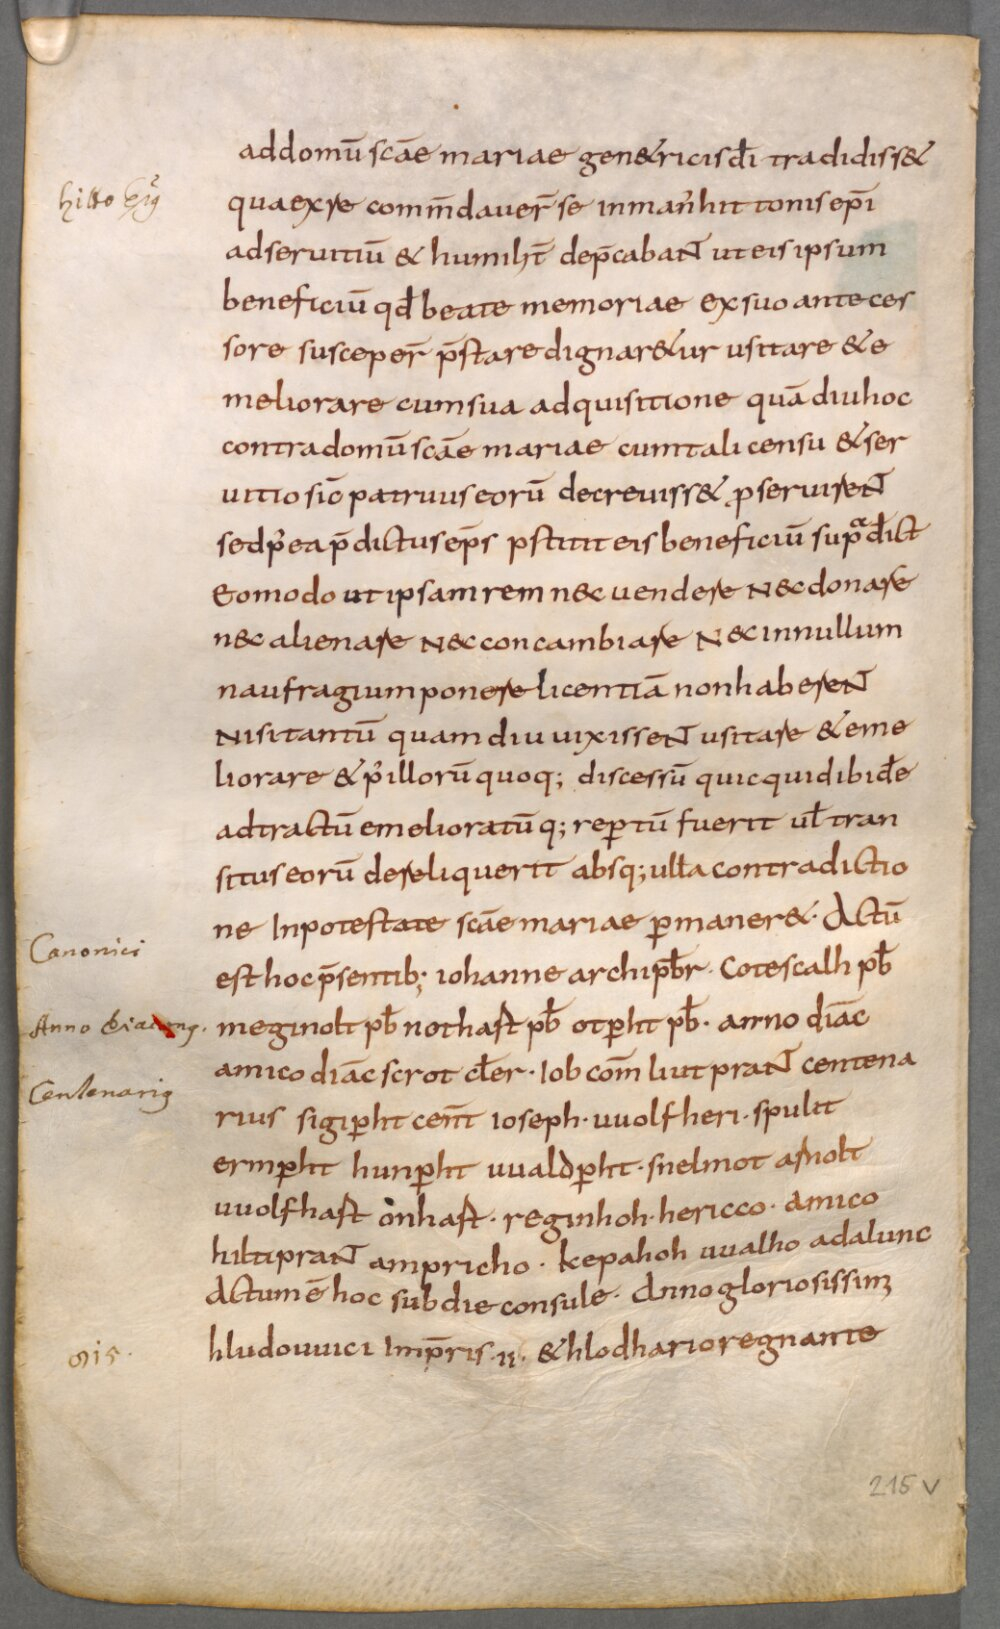 addomū scāe mariae gen&ricis dī tradidiss&
hitto ep̄s
quaexre com̄daver̄ se inman' hittonis ep̄i
adservitiū & humilit̄ dep̄cabant ut eis ipsum
beneficiū qđ beate memoriae exsuo anteces
sore susceper̄ p̄stare dignar&ur usitare & e
meliorare cumsua adquisitione quā diu hoc
contradomū scāe mariae cumtali censu & ser
vitio sic̄ patruus eorū decreviss& pservirent
sedp'ea p̄dictus ep̄s pstitit eis beneficiū supadict
eomodo ut ipsam rem nec vendere nec donare
nec alienare nec concambiare nec innullum
naufragium ponere licentiā nonhaberent
nisi tantū quamdiu vixissent usitare & eme
liorare & p' illorū quoq; discessū quicquid ibidē
adtractū emelioratūq; reptū fuerit uł tran
situs eorū dereliquerit absq; ulla contradictio
ne Inpotestate scāe mariae pmaner&. Actū
Canonici
est hoc p̄sentib; iohanne archipb̄r. Cotescalh pb̄
Anno diaconus.
meginolt pb̄ nothaft pb̄ otpht pb̄. anno diāc
amico diāc scrot cler. Iob com̄ liutprant centena
Centenarius
rius sigipht cent̄ ioseph. uuolfheri. spulit
ermpht hunpht uualdpht. snelmot arnolt
uuolfhaft onhaft. reginhoh. hericco. amico
hiltiprant ampricho. kepahoh uualho adalunc
Actum ē hoc sub die consule. Anno gloriosissim
915.
hludouuici Imp̄ris. II. & hlodhario regnante
215 v